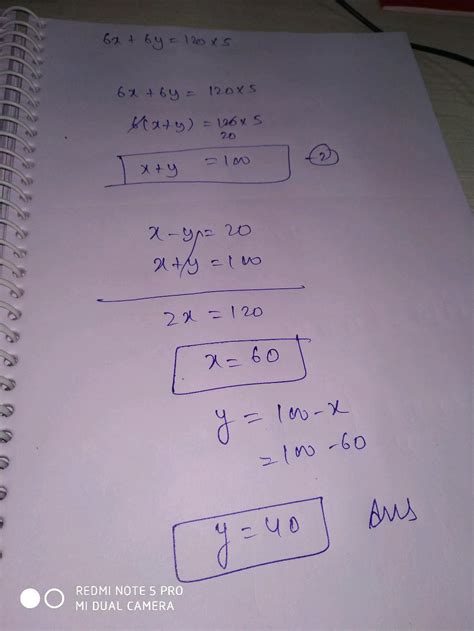 6x + 6y = 120 x 5
6x + 6y = 120 x 5
6(x+y) = 120 x 5
20
x+y = 100 (2)
x - y = 20
x + y = 100
2x = 120
x = 60
y = 100 - x
= 100 - 60
y = 40 Ans
REDMI NOTE 5 PRO
MI DUAL CAMERA